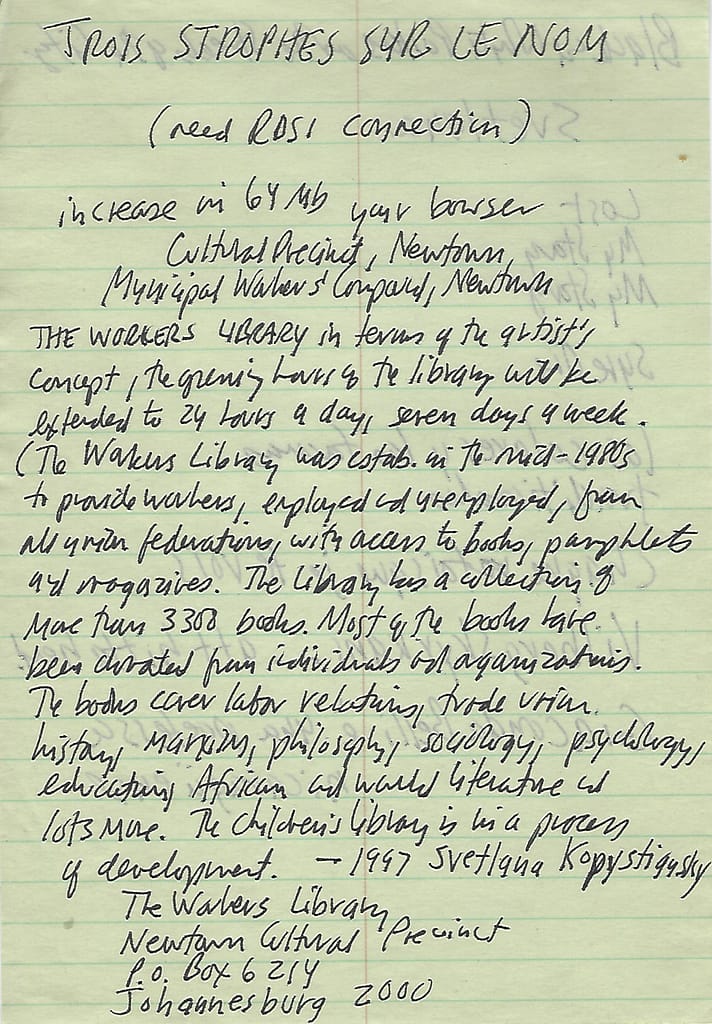 TROIS STROPHES SUR LE NOM
(need RDSI connection)
increase in 64 Mb your bowser
Cultural Precinct, Newtown,
Municipal Workers' Compound, Newtown
THE WORKERS LIBRARY in terms of the artist's
concept, the opening hours of the library will be
extended to 24 hours a day, seven days a week.
(The Workers Library was estab. in the mid-1980s
to provide workers, employed and unemployed, from
all union federations, with access to books, pamphlets
and magazines. The library has a collection of
more than 3300 books. Most of the books have
been donated from individuals and organizations.
The books cover labor relations, trade union
history, marxism, philosophy, sociology, psychology,
education, African and world literature and
lots more. The children's library is in a process
of development. — 1997 Svetlana Kopystiansky
The Workers Library
Newtown Cultural Precinct
P.O. Box 6214
Johannesburg 2000